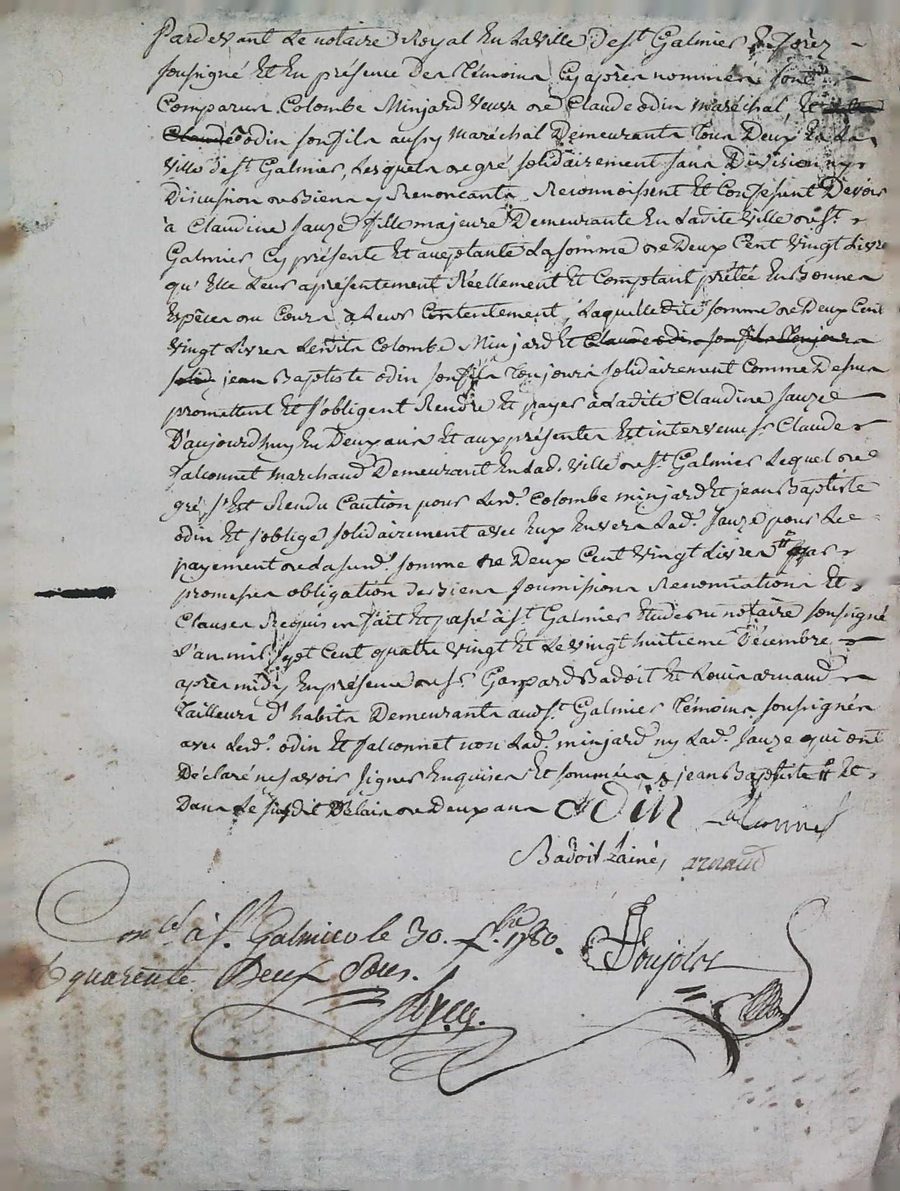 Pardevant Le notaire Royal En La Ville de st. Galmier En forez
soussigné Et En présence des témoins Cy après nommés sont
Comparus Colombe Minjard veuve de Claude odin maréchal, Et
Claude odin son fils aussy Maréchal Demeurants tous Deux En La
Ville de st. Galmier, Lesquels de gré solidairement sans Division ny
Discusion de Biens y Renonçants Reconnoissent Et Confessent Devoir
à Claudine sauze fille majeure Demeurante En Ladite Ville de st.
Galmier Cy présente Et aceptante La somme de Deux Cent Vingt Livre
qu'Elle Leurs a présentement Réellement Et Comptant prêtée En Bonnes
Espèces du Cours à Leurs Contentement, Laquelle dite somme de Deux Cent
Vingt Livres Lesdits Colombe Minjard Et Claude odin son fils toujours
solid jean Baptiste odin son fils toujours solidairement Comme Dessus
promettent Et s'obligent Rendre Et payer à Ladite Claudine sauze
D'aujourd'huy En Deux ans Et aux présentes Est intervenu sr. Claude
falconnet Marchand Demeurant En Lad. Ville de st. Galmier Lequel de
gré s'Est Rendu Caution pour Lesd. Colombe minjard Et jean Baptiste
odin Et s'oblige solidairement avec Eux Envers Lad. sauze pour Le
payement de La susd. somme de Deux Cent Vingt Livres par
promesses obligation de Biens soumissions Renontiations Et
Clauses Requises fait Et passé à st. Galmier Etude du notaire soussigné
L'an mil sept Cent quatre Vingt Et Le Vingt huitieme Décembre
après midy En présence de sr. Gaspard Badoit Et Louis arnaud
tailleurs d'habits Demeurants aud. st. Galmier témoins soussignés
avec Lesd. odin Et falconnet non Lad. minjard ny Lad. sauze qui ont
Déclaré ne savoir signer Enquises Et sommées jean Baptiste Et
Dans Le susdit Délais de Deux ans odin falconnet
Badoit Lainé, arnaud
Conlé. à st. Galmier le 30. xbre 1780.
quarente Deux sous.